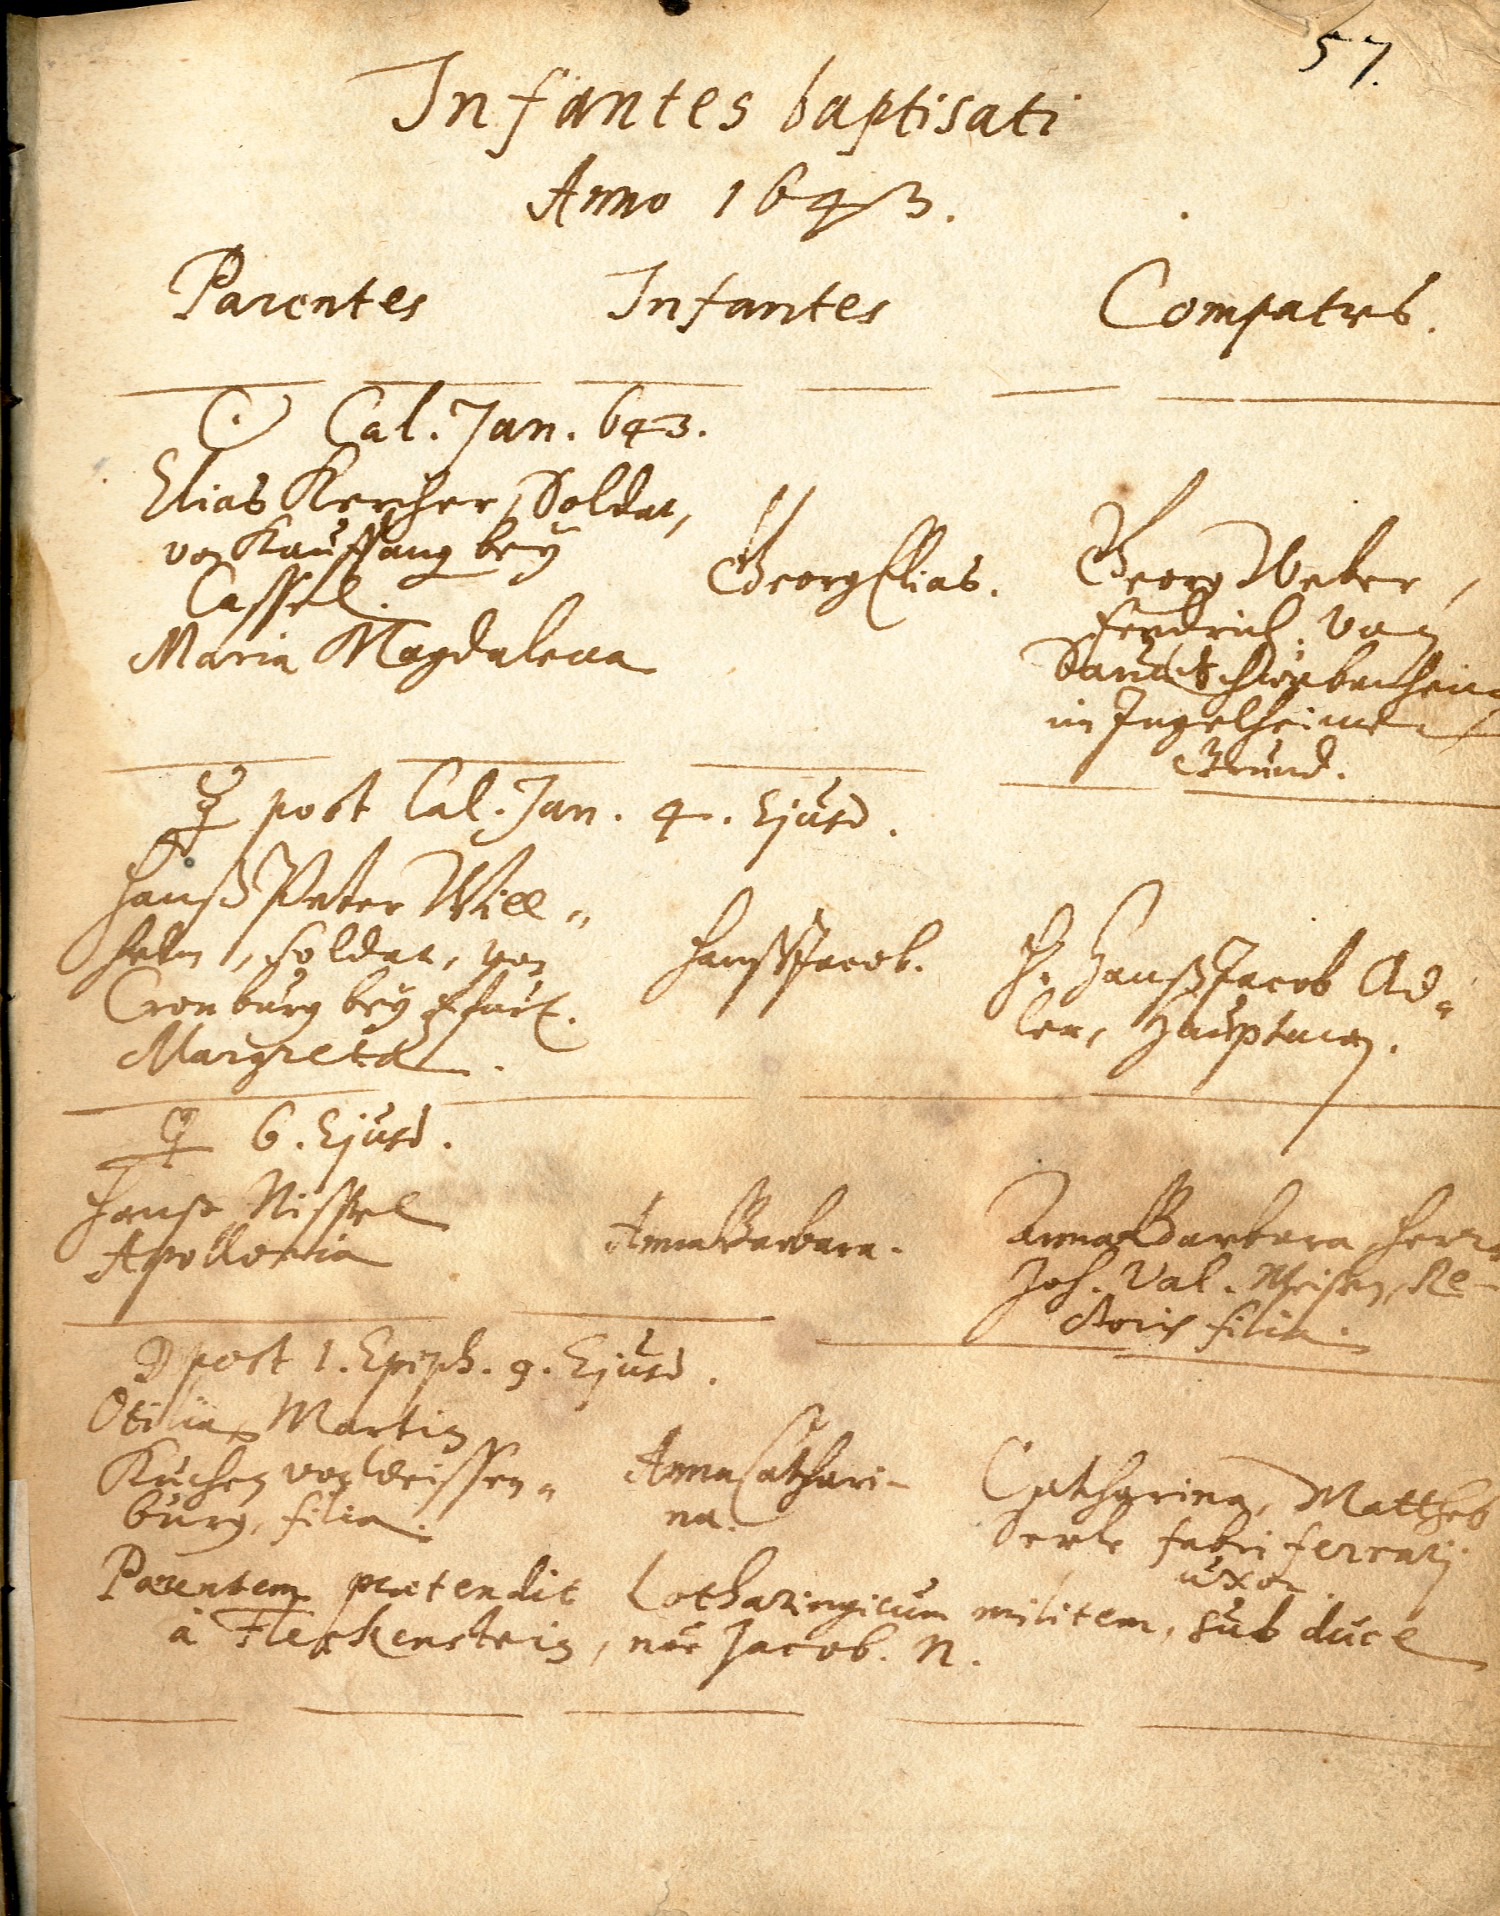 57.
Infantes baptisati
Anno 1643.
Parentes Infantes Compatres.
☉ Cal. Jan. 643.
Elias Kercher, Soldat,
von Kauffung bey
Cassel.
Maria Magdalena
Georg Elias.
Georg Weber,
fendrich. von
im Ingelheimer
Grund.
☿ post Cal. Jan. 4. Ejusd.
Hanß Peter Will„
helm, soldat, von
Cronburg bey ffurt.
Margreta.
Hanß Jacob.
H. Hanß Jacob Ad„
ler, Hauptman.
♀ 6. Ejusd.
Hanß Nissel
Apollonia
Anna Barbara.
Anna Barbara, Herrn
Joh. Val. Meisen, Re-
ctoris filia.
☽ post 1. Epiph. 9. Ejusd.
Otilia, Martin
Kuchen von Weissen„
burg, filia.
Anna Cathari-
na.
Catharina, Mattheß
fabri ferrarij
uxor.
Parentem prætendit Lotharingicum militem, sub duce
à Fleckenstein, nõe Jacob. N.